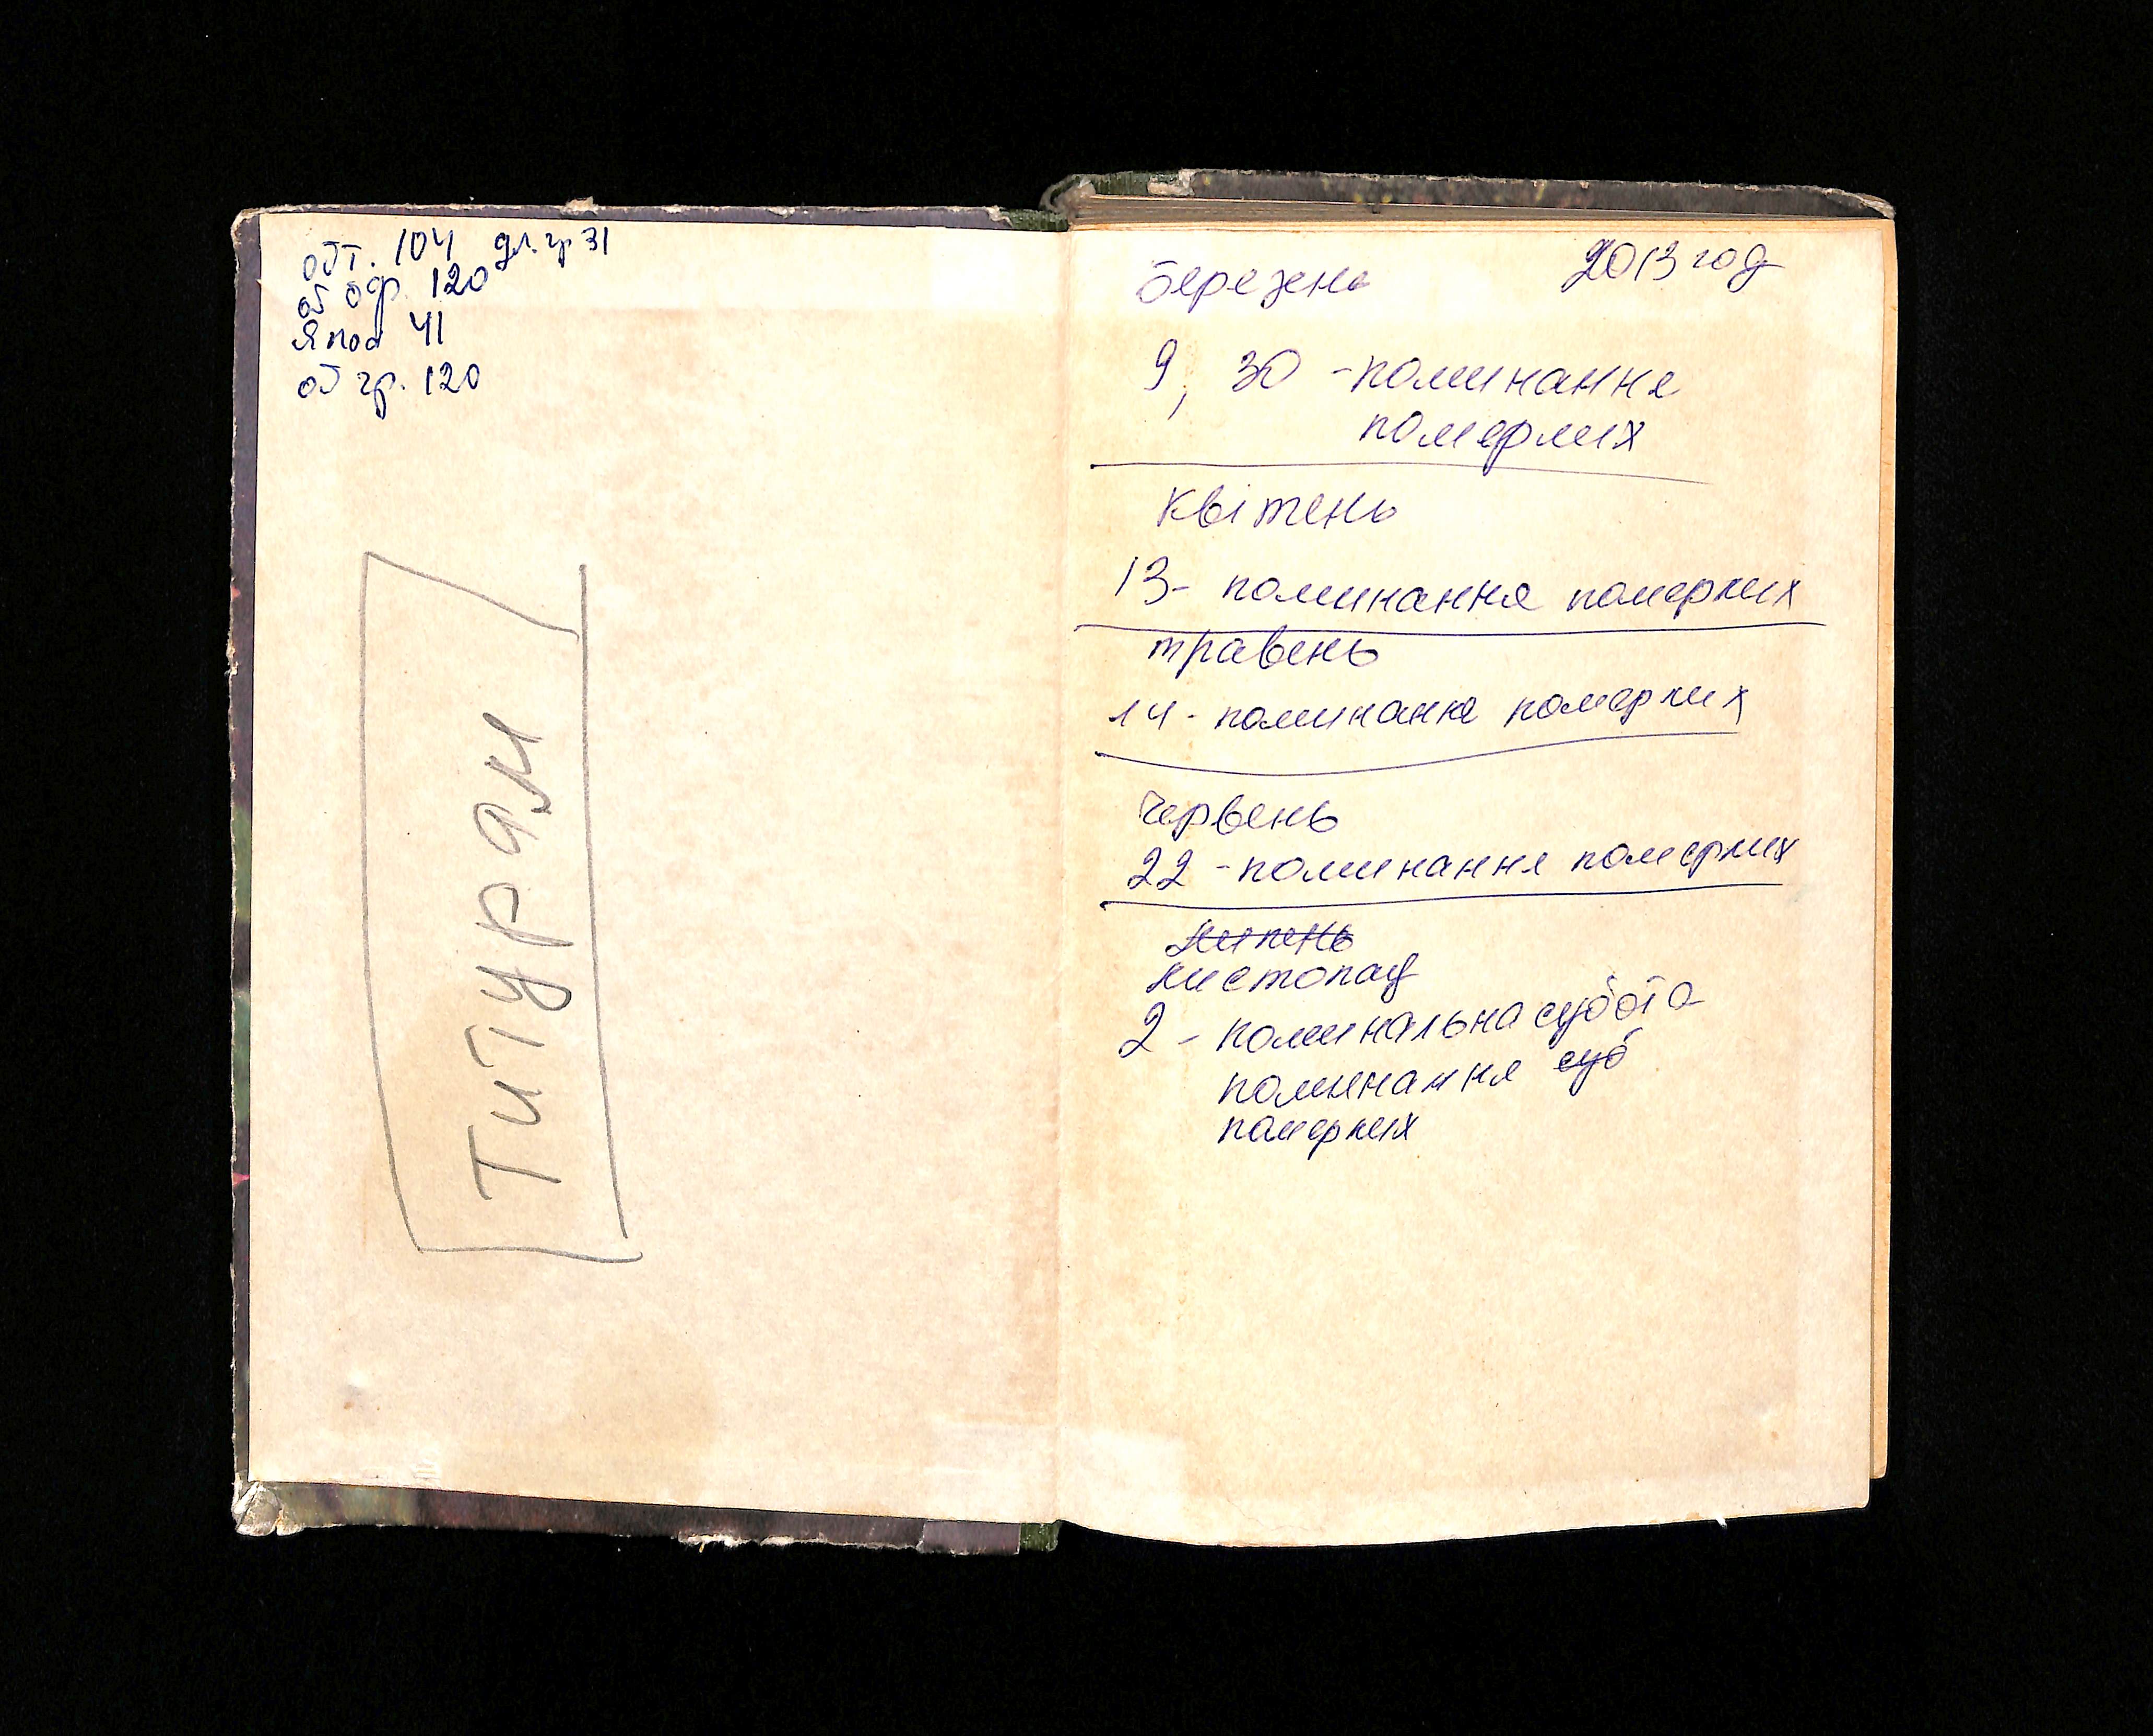 обт. 104 дл. гр 31
об ор. 120
Я под 41
об гр. 120
Титурям
березень 2013 год
9, 30 - поминання
померлих
квітень
13 - поминання померлих
травень
14 - поминання померлих
червень
22 - поминання померлих
липень
листопад
2 - поминальна субота
поминання суб
померлих